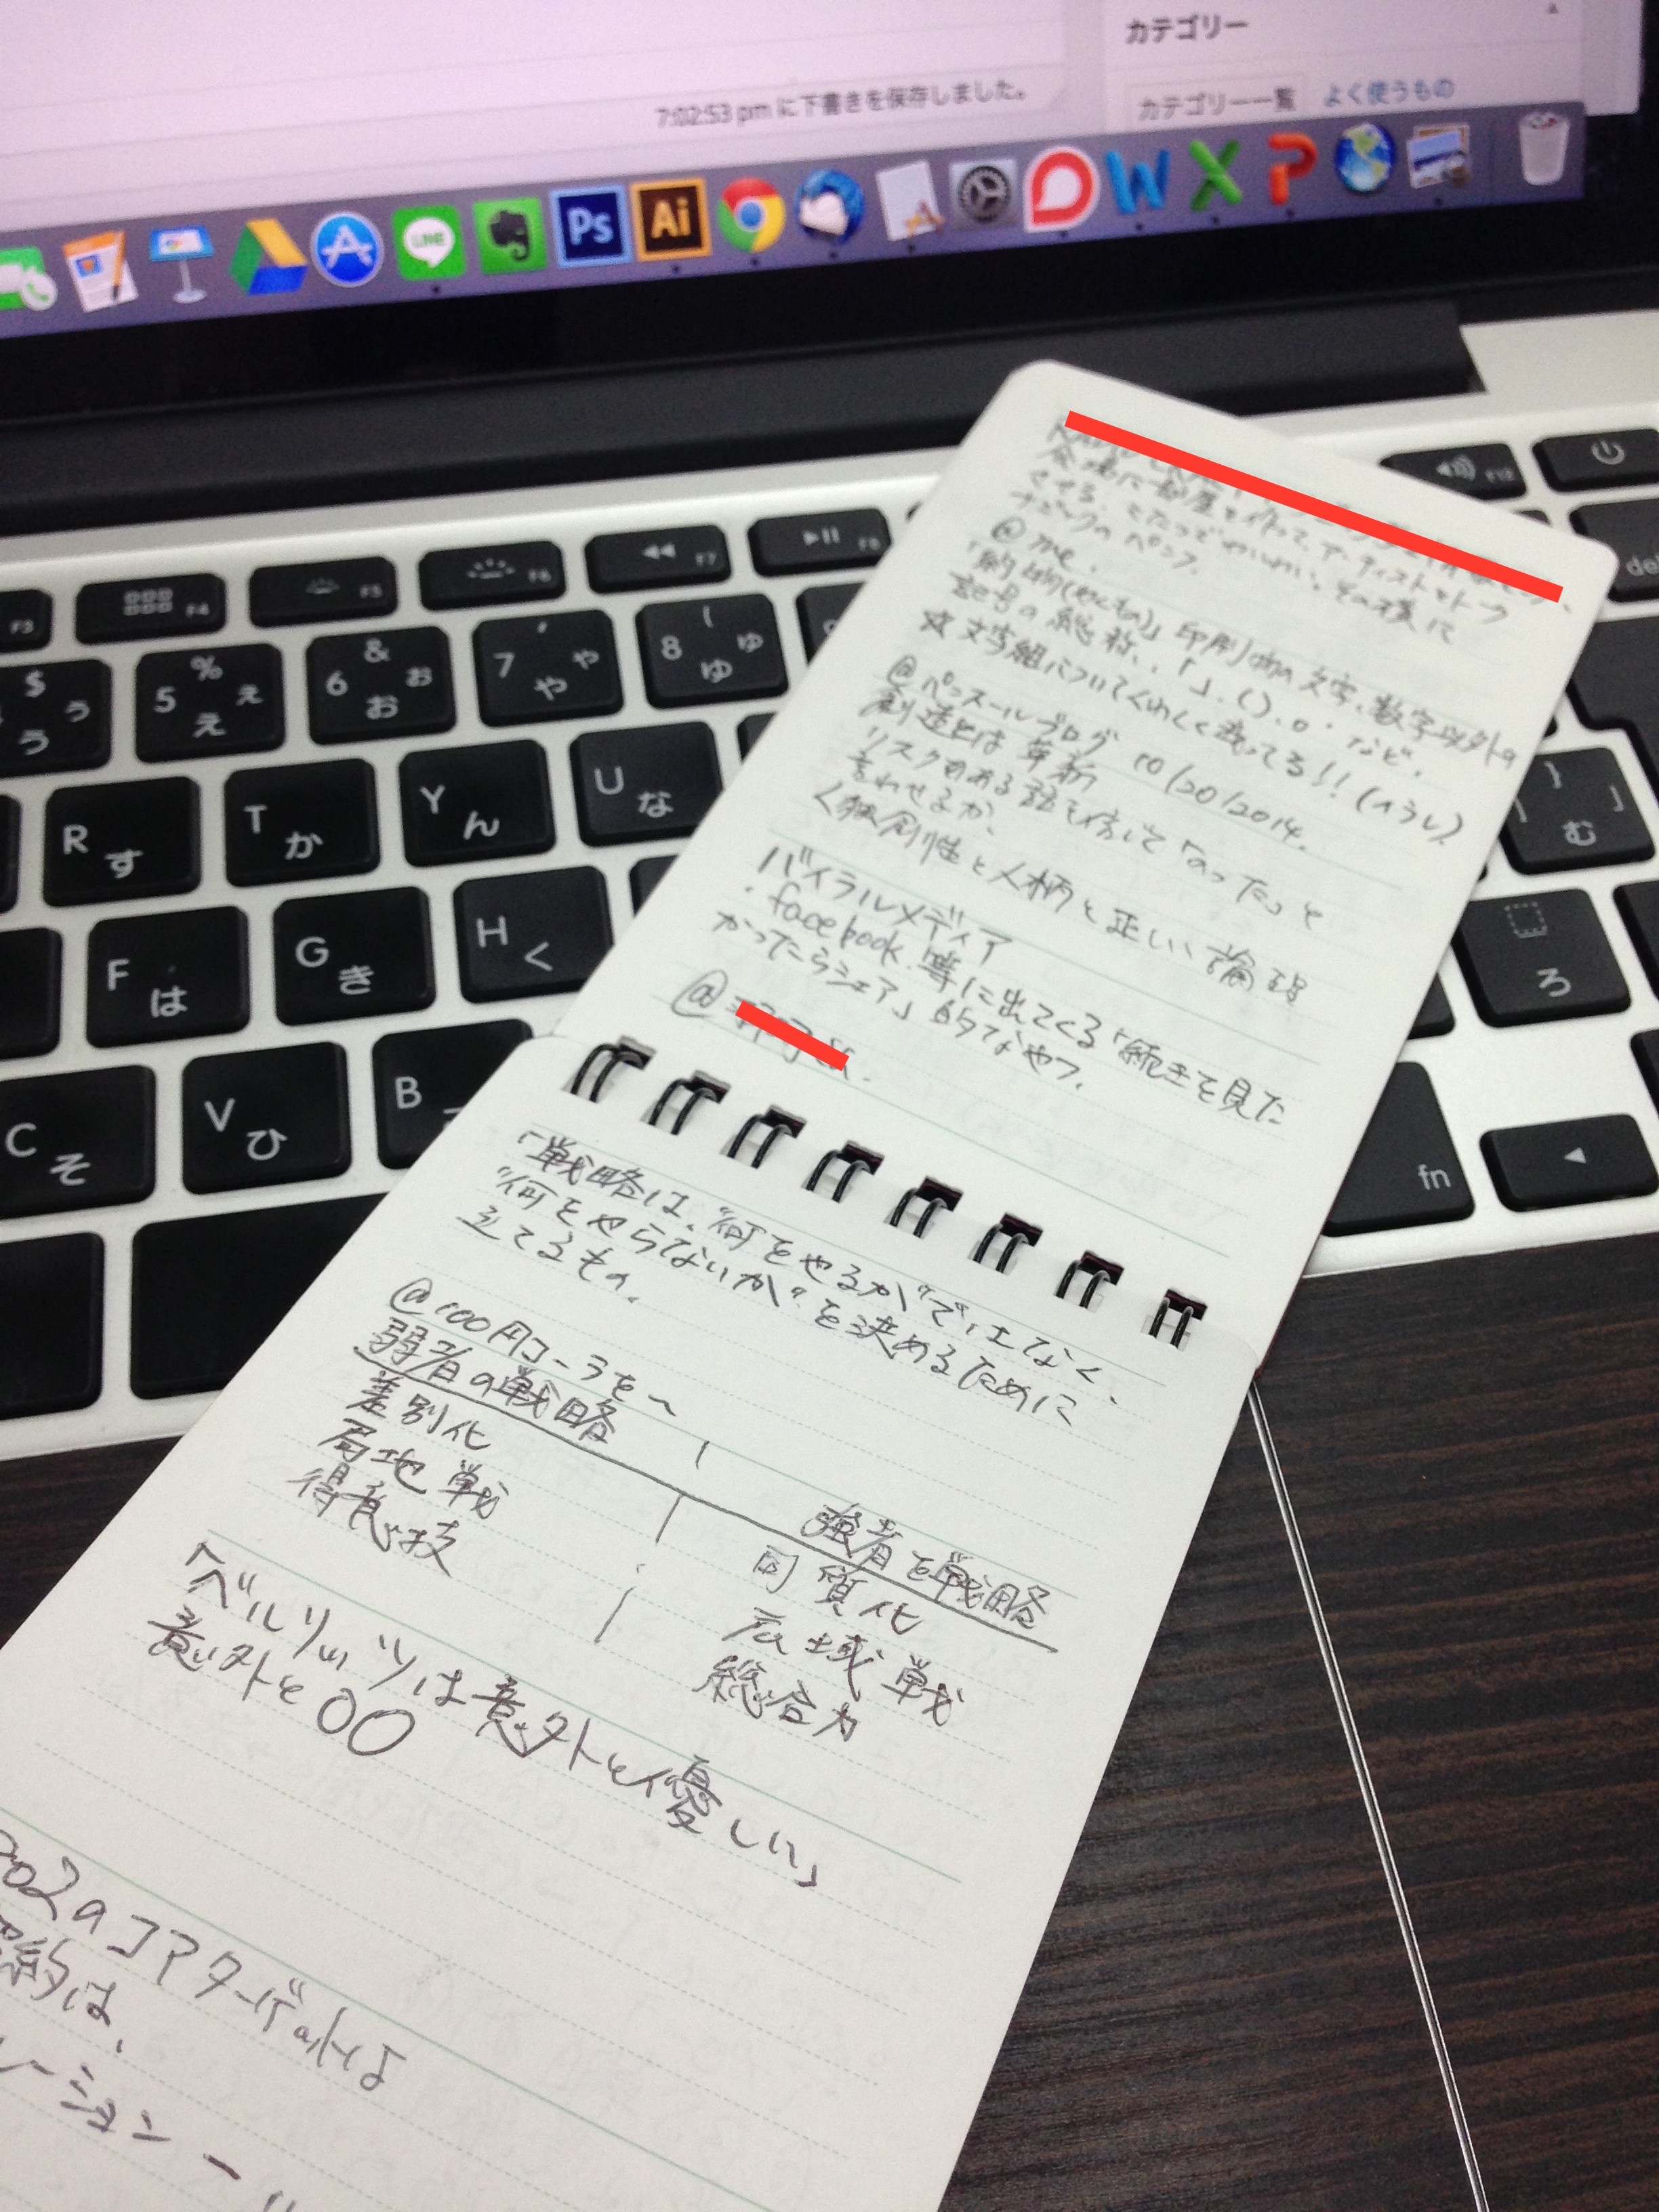 カテゴリー
7:02:53 pm に下書きを保存しました。
カテゴリー一覧 よく使うもの
LINE
Ps
Ai
W
X
P
F3
F4
F5
F6
F7
F8
F12
del
$ う ぅ
% 5 え ぇ
& 6 お ぉ
' 7 や ゃ
( 8 ゆ ゅ
R す
T か
Y ん
U な
} ] む
F は
G き
H く
ろ
C そ
V ひ
B
fn
会場に部屋を作って、アーティストとトーク
させる。
のペンフ。
@me.
「約物(やくもの)」印刷物の文字、数字以外の
記号の総称、「」、()、。・など。
☆文字組についてくわしく載ってる!!
@ペンスールブログ 10/20/2014.
創造とは革新
リスクのある話を信じて「のった」と
言わせるか、
く独創性と人柄と正しい論理
バイラルメディア
・facebook.等に出てくる「続きを見た
かったらシェア」的なやつ.
@
「戦略は、"何をやるか"ではなく、
"何をやらないか"を決めるために
立てるもの。
@100円コーラを〜
弱者の戦略
強者を戦略
差別化
同質化
局地戦
広域戦
得意技
総合力
「ベルリッツは意外と優しい」
意外と〇〇
のコアターゲットは
約は、
レーション